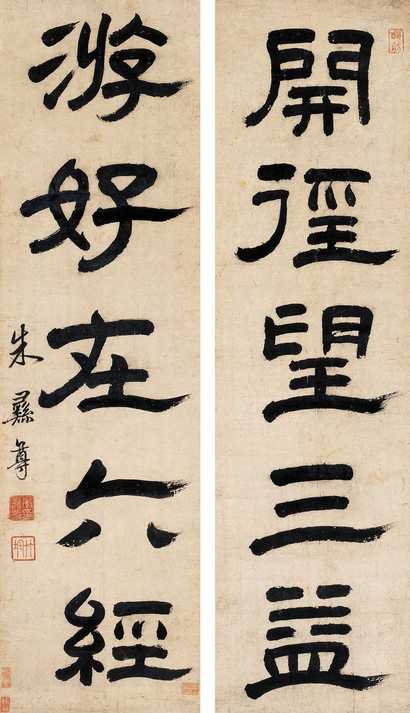 開徑望三益
游好在六經
朱彝尊